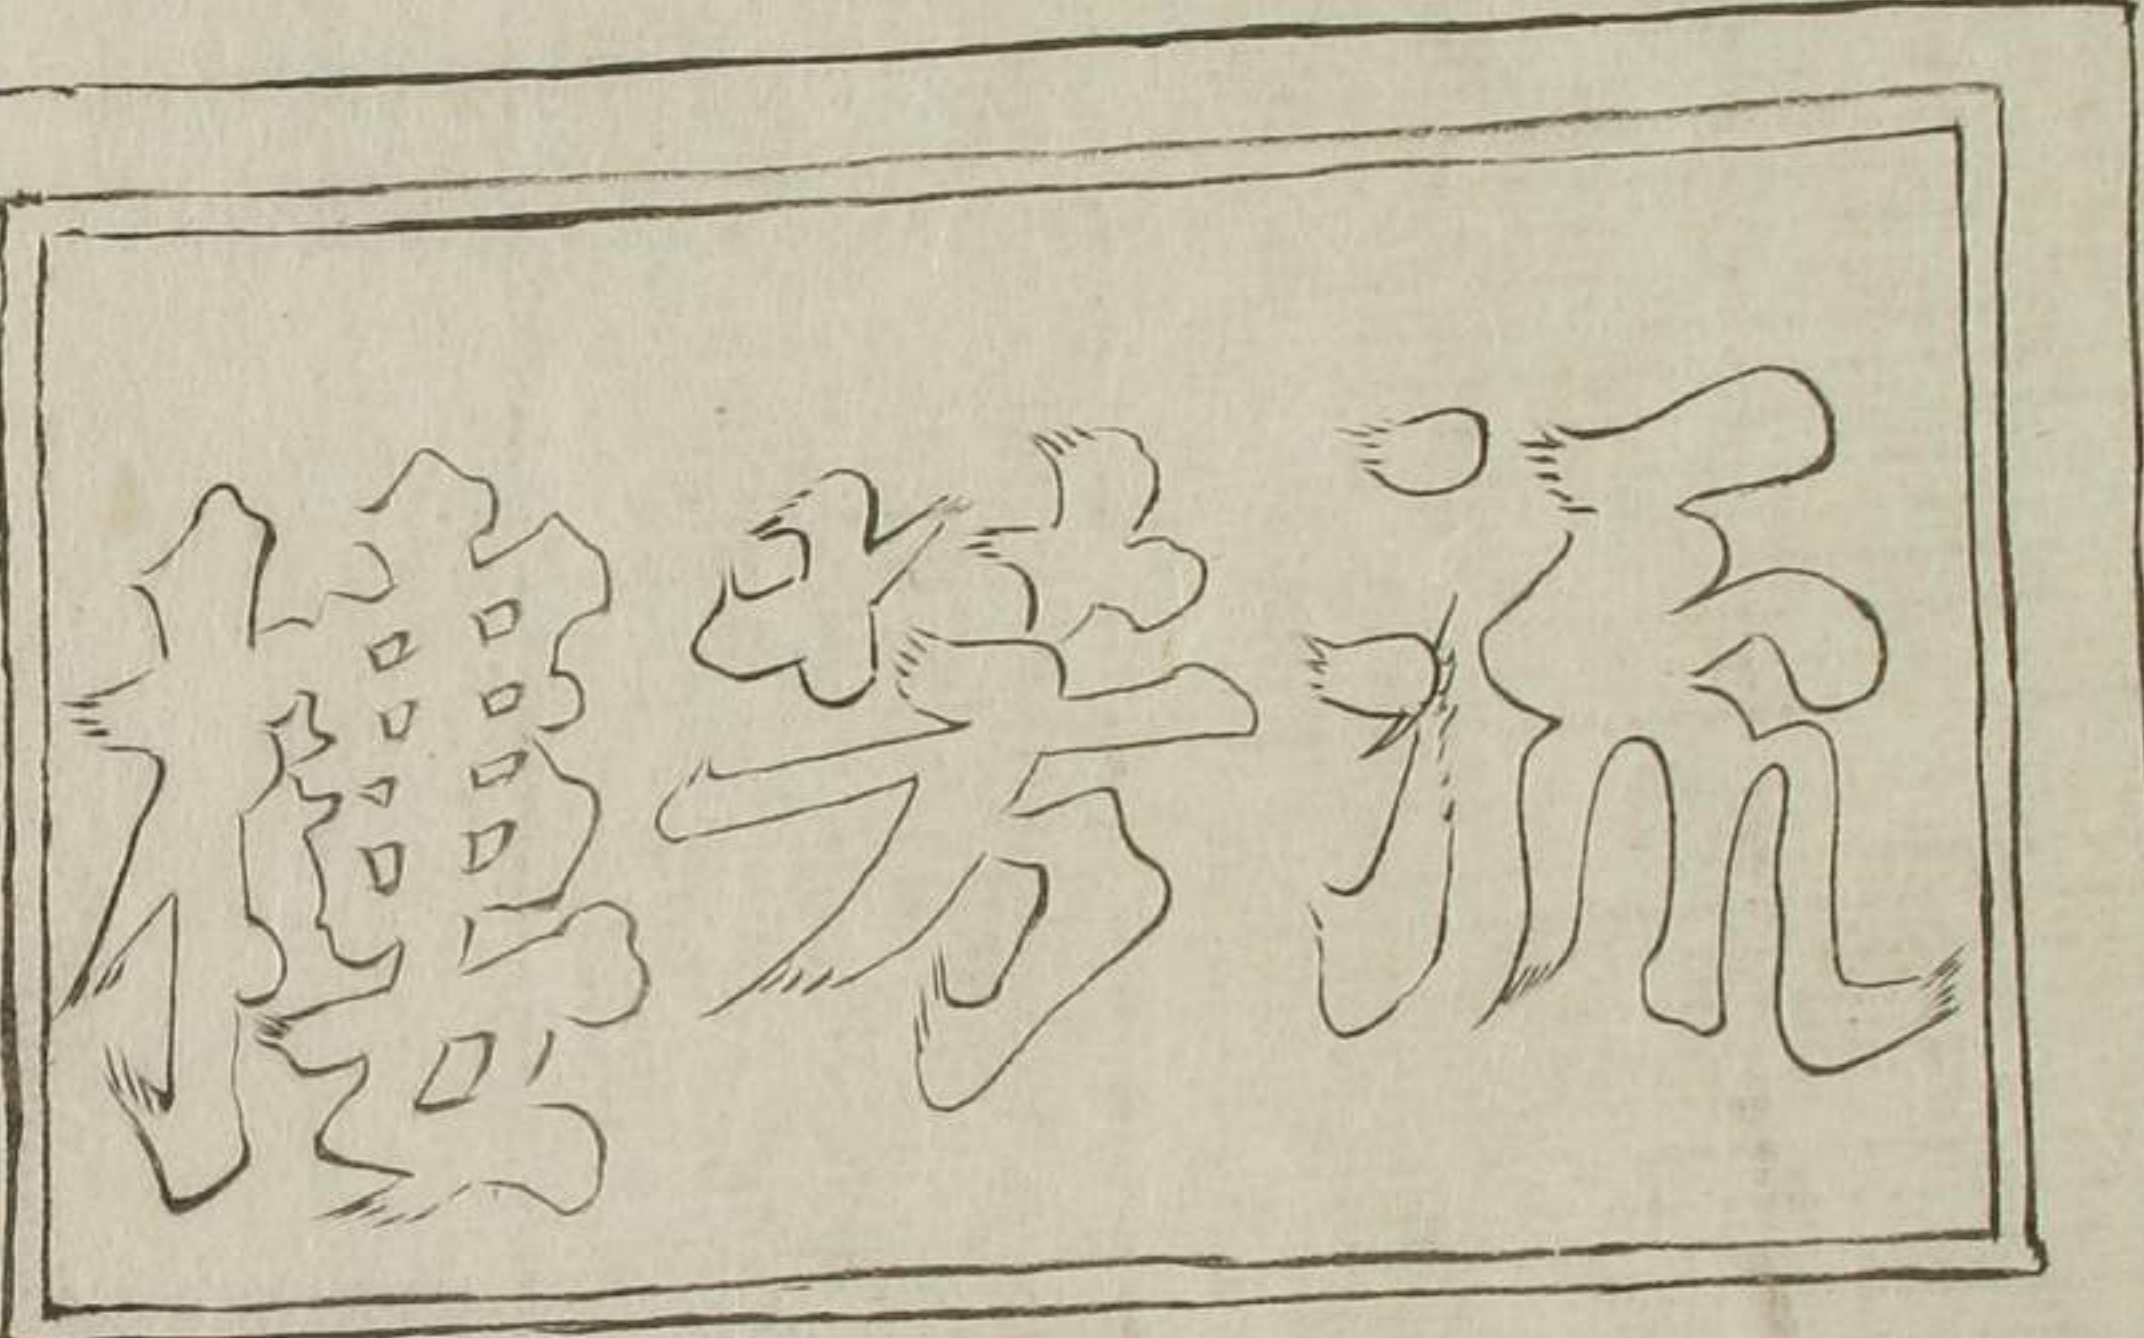 流芳樓